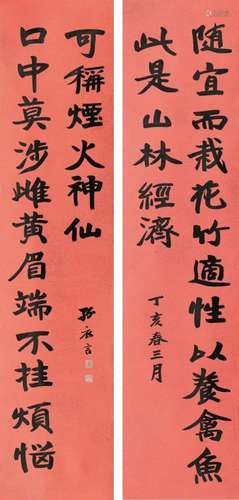 随宜而栽花竹適性以養禽魚
此是山林經濟
丁亥春三月
口中莫涉雌黄眉端不挂煩惱
可稱煙火神仙
孫衣言